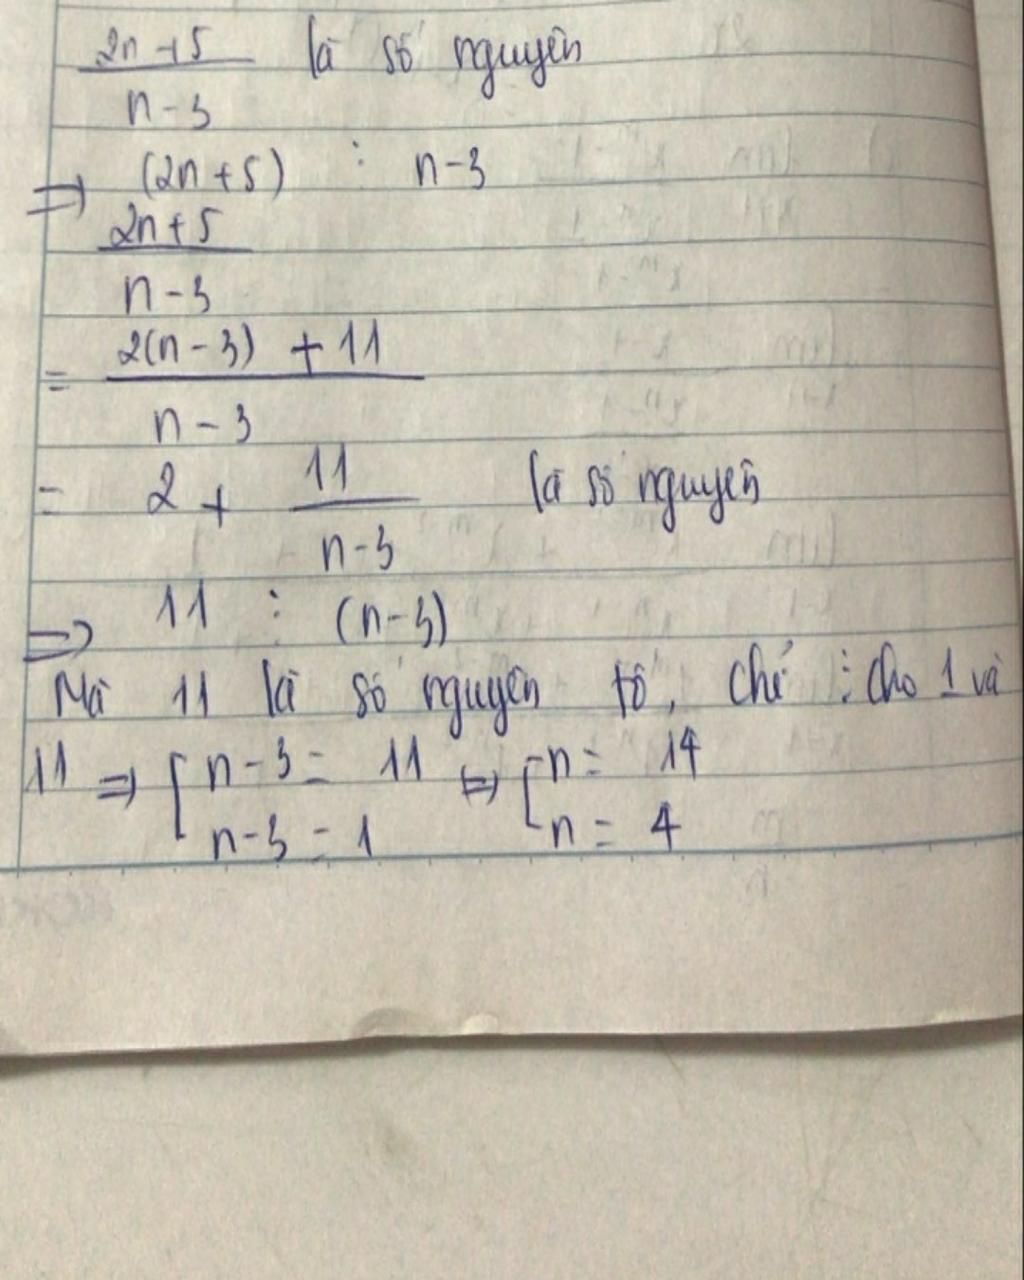 2n+5 là số nguyên
n-3
⇒ (2n+5) ⋮ n-3
2n+5
n-3
= 2(n-3) + 11
n-3
= 2 + 11 là số nguyên
n-3
⇒ 11 ⋮ (n-3)
Mà 11 là số nguyên tố, chỉ ⋮ cho 1 và
11 ⇒ [ n-3 = 11 ⇔ [ n = 14
n-3 = 1 n = 4